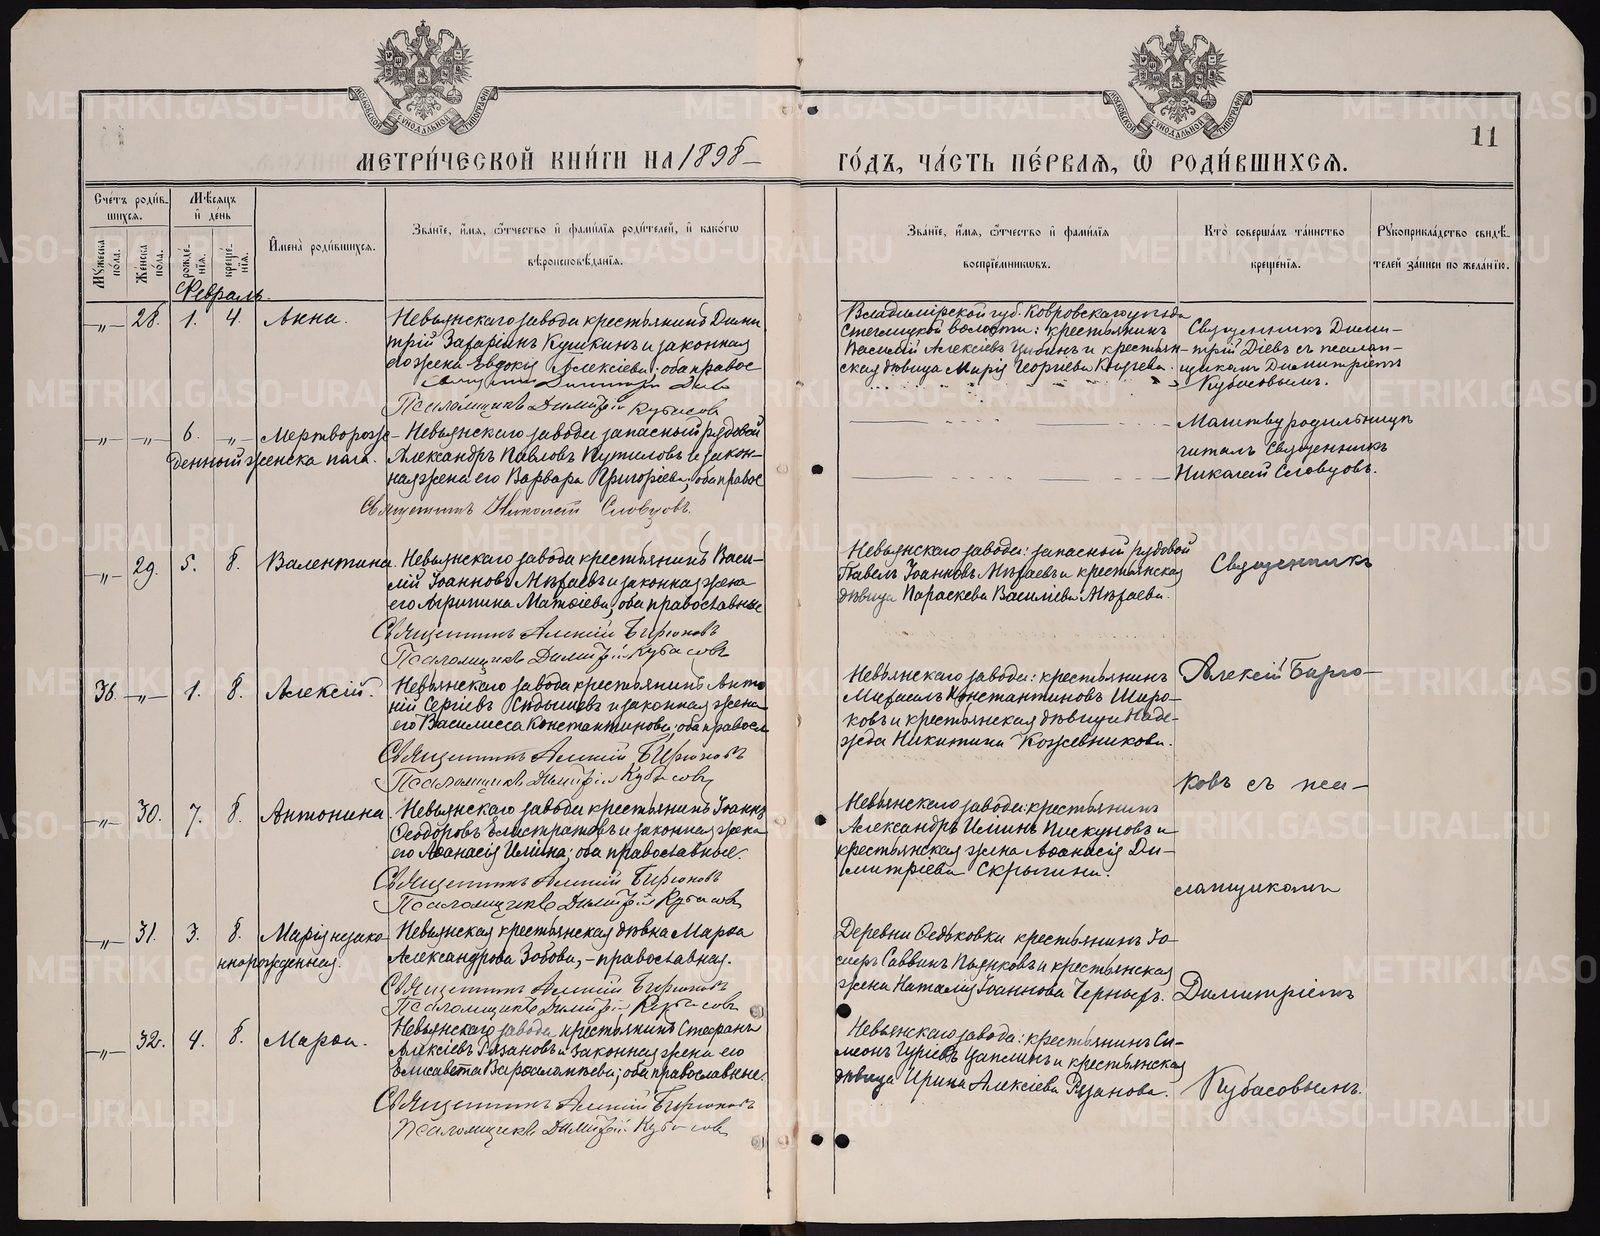 МЕТРИ́ЧЕСКОЙ КНИ́ГИ НА 1898
ГО́ДЪ, ЧА́СТЬ ПЕ́РВАЯ, Ѿ РОДИ́ВШИХСѦ.
11
МОСКОВСКОЙ СѴНОДАЛЬНОЙ ТИПОГРАФІИ
МОСКОВСКОЙ СѴНОДАЛЬНОЙ ТИПОГРАФІИ
Сче́тъ роди́вшихсѧ.
Мꙋ́жеска по́ла.
Же́нска по́ла.
Мѣ́сѧцъ и҆ де́нь
рожде́нїѧ.
креще́нїѧ.
И҆мена̀ роди́вшихсѧ.
Зва́нїе, и҆́мѧ, ѻ҆́тчество и҆ фами́лїѧ роди́телей, и҆ како́гѡ
вѣроисповѣ́данїѧ.
Зва́нїе, и҆́мѧ, ѻ҆́тчество и҆ фами́лїѧ
воспрїе́мникѡвъ.
Кто̀ соверша́лъ та́инство
креще́нїѧ.
Рꙋкоприкла́дство свидѣ́-
телей за́писи по жела́нїю.
Февраль.
-„- 28. 1. 4. Анна.
Невьянскаго завода крестьянинъ Дими
трій Захаріинъ Кушкинъ и законная
его жена Евдокія Алексіева; оба правос
Псаломщикъ Димитрій Кубасовъ
Владимірской губ. Ковровскаго уѣзда
волости: крестьянинъ
Василій Алексіевъ и крестьян-
ская дѣвица Марія Георгіева
Священникъ Дими-
трій Діевъ съ псалом-
щикомъ Димитріемъ
Кубасовымъ.
-„- -„- 6. -„- Мертворож-
денный женска пола.
Невьянскаго завода запасный рядовой
Александръ Павловъ Путиловъ и закон-
ная жена его Варвара Григоріева; оба правос
Священникъ Николай Словцовъ.
Молитву родильницѣ
читалъ Священникъ
Николай Словцовъ.
-„- 29. 5. 8. Валентина
Невьянскаго завода крестьянинъ Васи-
лій Іоанновъ и законная жена
его Агрипина Матѳіева; оба православные
Священникъ Алексій Бирюковъ
Псаломщикъ Димитрій Кубасовъ
Невьянскаго завода: запасный рядовой
Павелъ Іоанновъ и крестьянская
дѣвица Параскева Василіева
Священникъ
36. -„- 1. 8. Алексій.
Невьянскаго завода крестьянинъ Анто
ній Сергіевъ и законная жена
его Василисса Константинова; оба правосл
Священникъ Алексій Бирюковъ
Псаломщикъ Димитрій Кубасовъ
Невьянскаго завода: крестьянинъ
Михаилъ Константиновъ Широ-
ковъ и крестьянская дѣвица Наде-
жда Никитина Кожевникова.
Алексій Бирю-
ковъ съ пса-
-„- 30. 7. 8. Антонина.
Невьянскаго завода крестьянинъ Іоаннъ
Ѳеодоровъ Елистратовъ и законная жена
его Аѳанасія Иліина; оба православные.
Священникъ Алексій Бирюковъ
Псаломщикъ Димитрій Кубасовъ
Невьянскаго завода: крестьянинъ
Александръ Иліинъ Пискуновъ и
крестьянская жена Аѳанасія Ди-
митріева Скрыпина.
ломщикомъ
-„- 31. 3. 8. Марія незако-
ннорожденная.
Невьянская крестьянская дѣвка Марѳа
Александрова Зобова, - православная.
Священникъ Алексій Бирюковъ
Псаломщикъ Димитрій Кубасовъ
Деревни Ѳедьковки крестьянинъ Іо-
сифъ Саввинъ и крестьянская
жена Наталія Іоаннова Черныхъ.
Димитріемъ
-„- 32. 4. 8. Марѳа.
Невьянскаго завода крестьянинъ Стефанъ
Алексіевъ Рязановъ и законная жена его
Елисавета Варѳоломѣева; оба православные.
Священникъ Алексій Бирюковъ
Псаломщикъ Димитрій Кубасовъ
Невьянскаго завода: крестьянинъ Си-
меонъ Гуріевъ Цаплинъ и крестьянская
дѣвица Ирина Алексіева Рязанова.
Кубасовымъ.
METRIKI.GASO-URAL.RU